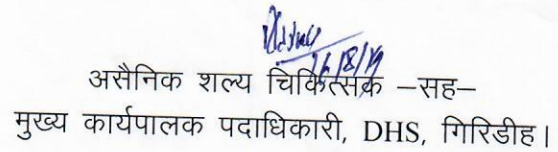 16/8/19
असैनिक शल्य चिकित्सक –सह–
मुख्य कार्यपालक पदाधिकारी, DHS, गिरिडीह।